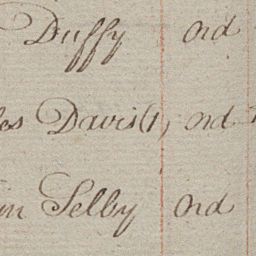 Duffy ord
les Davis (1, ord
m Selby ord